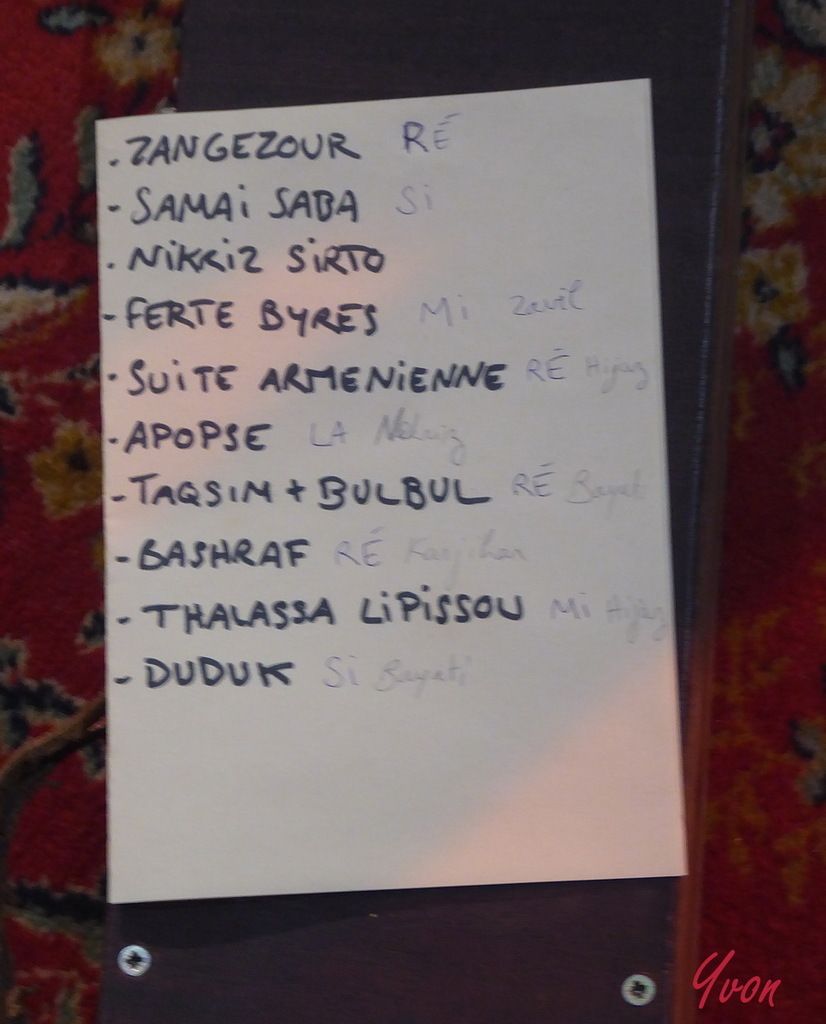 . ZANGEZOUR RÉ
- SAMAi SABA Si
. NiKRiZ SiRTO
- FERTE BYRES Mi Zavil
. SUiTE ARMENiENNE RÉ Hijaz
- APOPSE LA
- TAQSIM + BULBUL RÉ Bayati
- BASHRAF RÉ
- THALASSA LiPiSSOU Mi Hijaz
- DUDUK Si Bayati
Yvon